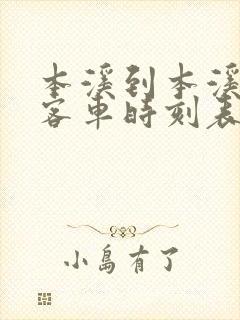 本溪到本溪
客车时刻表
小島有了